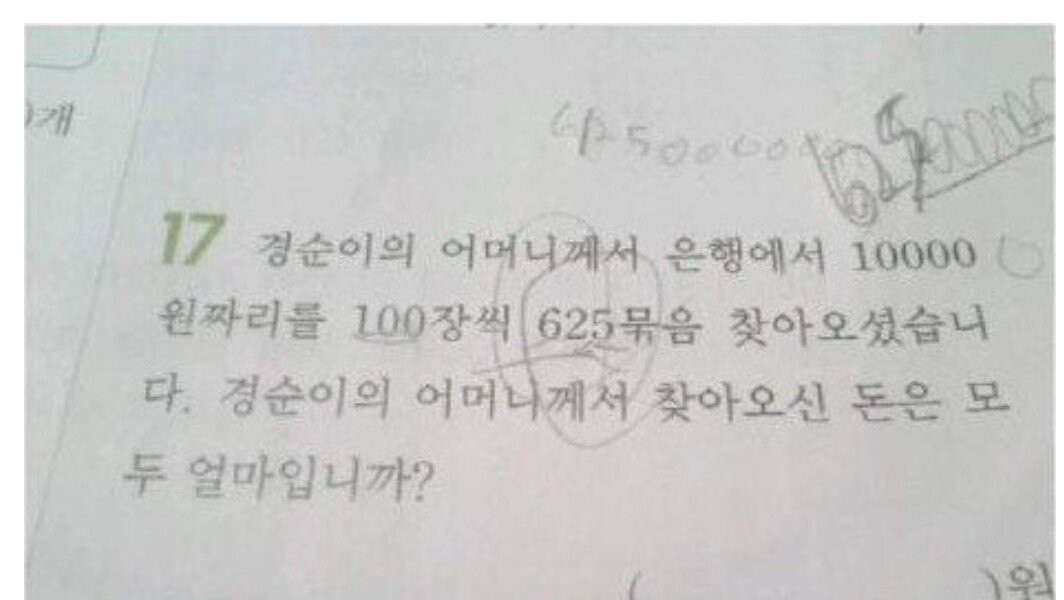 )개
17 경순이의 어머니께서 은행에서 10000
원짜리를 100장씩 625묶음 찾아오셨습니
다. 경순이의 어머니께서 찾아오신 돈은 모
두 얼마입니까?
( )원